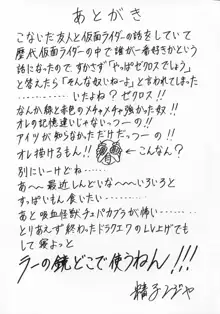 あとがき
こないだ友人と仮面ライダーの話をしていて
歴代仮面ライダーの中で誰が一番好きかという
話になったので、すかさず「やっぱゼクロスでしょう」
と答えたら「そんな奴いねーよ」と言われてしまった
……………いたよね？ゼクロス！！
なんか緑と赤色のメチャメチャ強かった奴！！
オレの記憶違いじゃないっつーの！！
アイツが知らなかっただけだっつーの！！
オレ描けるもん！！ ←こんなん？
別にいーけどね…
あ～～最近しんどいな～いろいろと
すっぱいもん食いたい……
あと吸血怪獣チュパカブラが怖い……
とりあえず終わったドラクエⅦのLV上げでも
して寝よっと
ラーの鏡どこで使うねん！！！